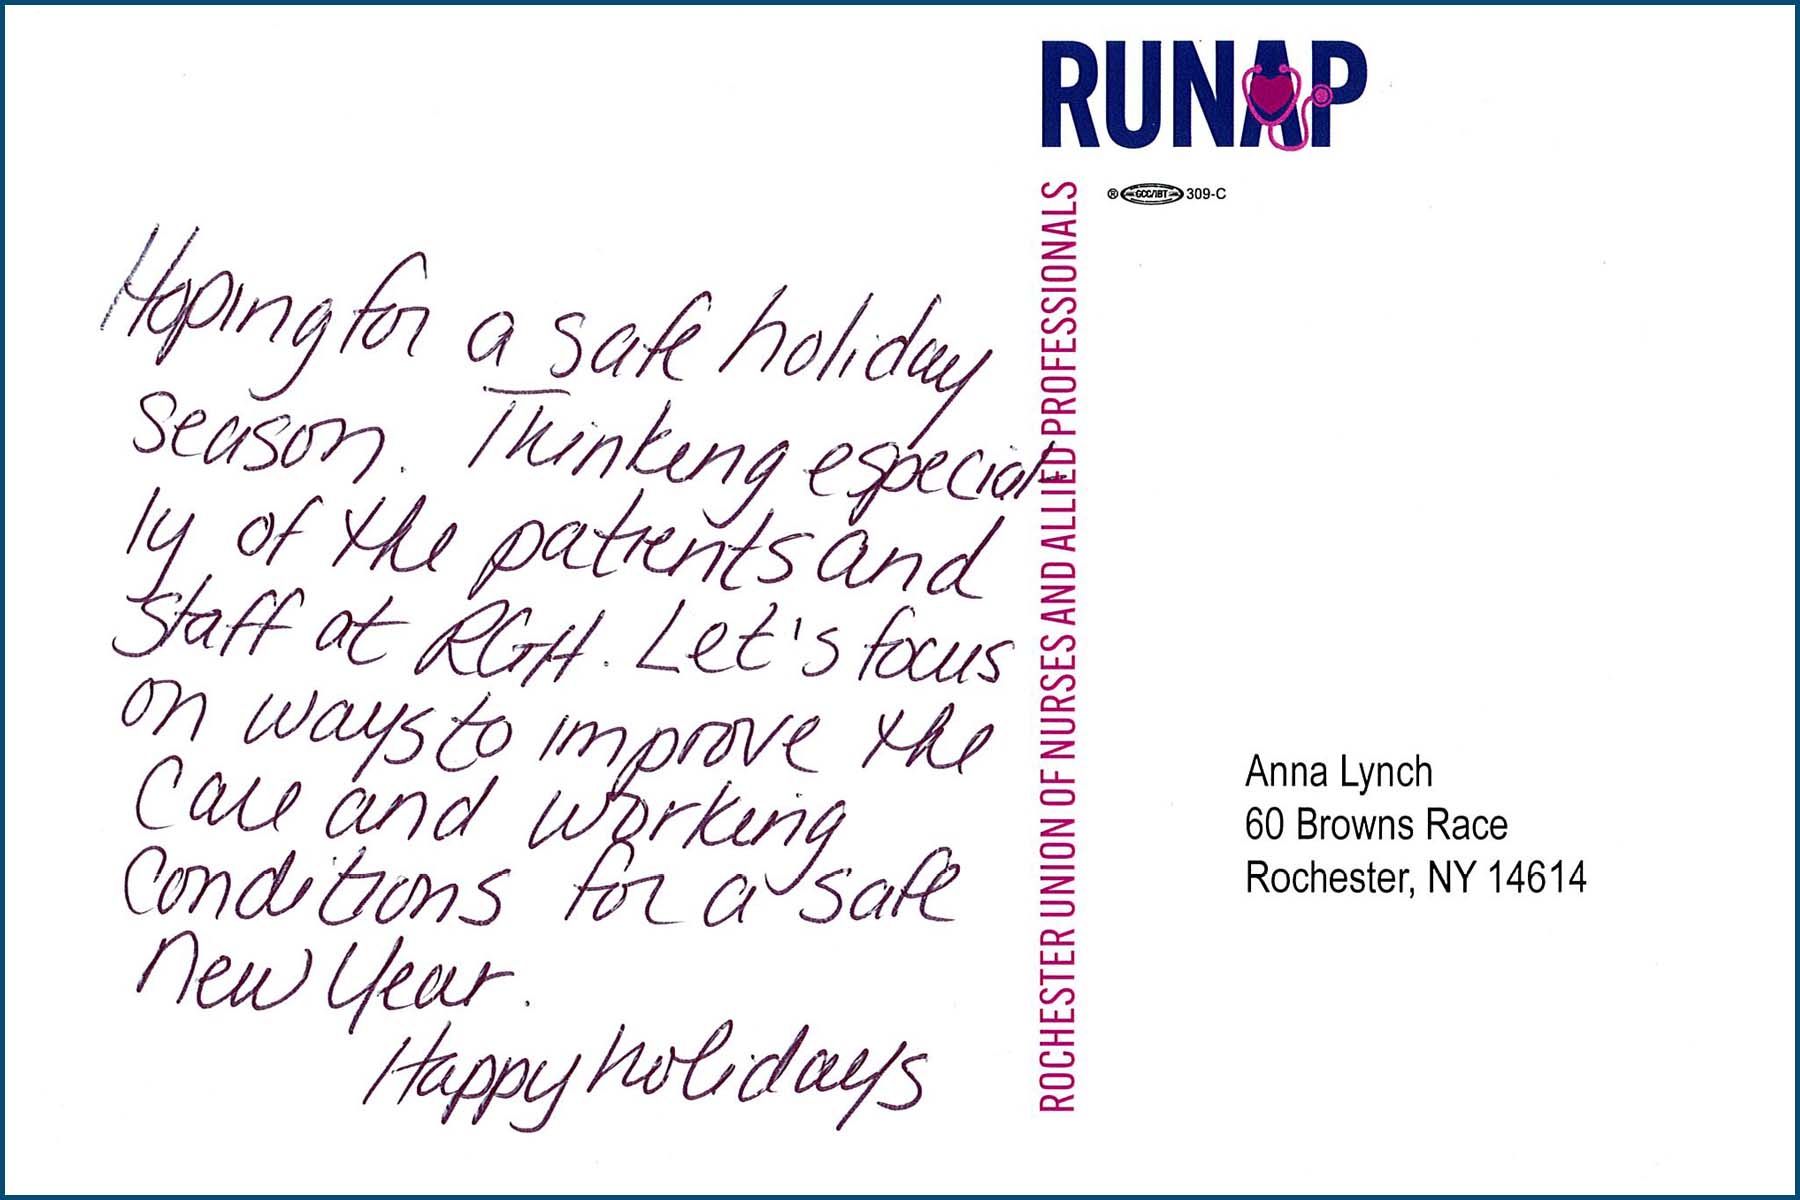 Hoping for a safe holiday
season. Thinking especial-
ly of the patients and
staff at RGH. Let's focus
on ways to improve the
care and working
conditions for a safe
new year.
Happy holidays
RUNAP
® GCC/IBT 309-C
ROCHESTER UNION OF NURSES AND ALLIED PROFESSIONALS
Anna Lynch
60 Browns Race
Rochester, NY 14614